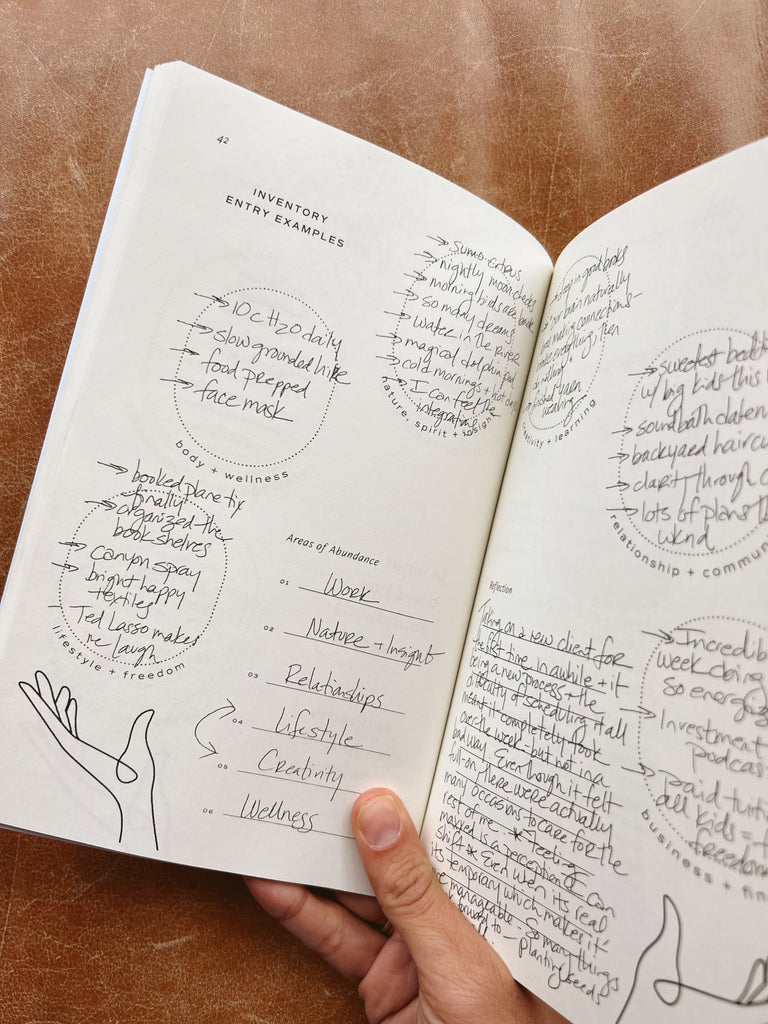 42
INVENTORY
ENTRY EXAMPLES
→ 10 c H2O daily
→ slow grounded hike
→ food prepped
→ face mask
body + wellness
→ Sumo citrus
→ nightly moon checks
→ morning kids are
→ so many dreams
→ water in the river
→ magical dolphin pod
→ cold mornings + hot
→ I can feel the
integrating
nature, spirit + insight
→ booked plane tix
finally
→ organized the
book shelves
→ canyon spray
→ bright happy
textiles
→ Ted Lasso makes
me laugh
lifestyle + freedom
Areas of Abundance
01 Work
02 Nature + Insight
03 Relationships
04 Lifestyle
05 Creativity
06 Wellness
in good books
brain naturally
making connections -
everything, then
creativity + learning
→ sweetest bedti
w/ big kids this
→ sound bath daten
→ backyard haircu
→ clarity through c
→ lots of plans th
wknd
relationship + commun
Reflection
Taking on a new client for
the first time in awhile + it
being a new process + the
difficulty of scheduling it all
meant it completely took
over the week - but not in a
bad way. Even though it felt
full-on, there were actually
many occasions to care for the
rest of me. * Feeling
maxed is a perception I can
shift * Even when its real
its temporary which makes it
manageable. So many things
forward to - planting seeds
→ Incredib
week doing
so energiz
→ Investment
podcas
→ paid tuiti
all kids = f
freedom
business + fin